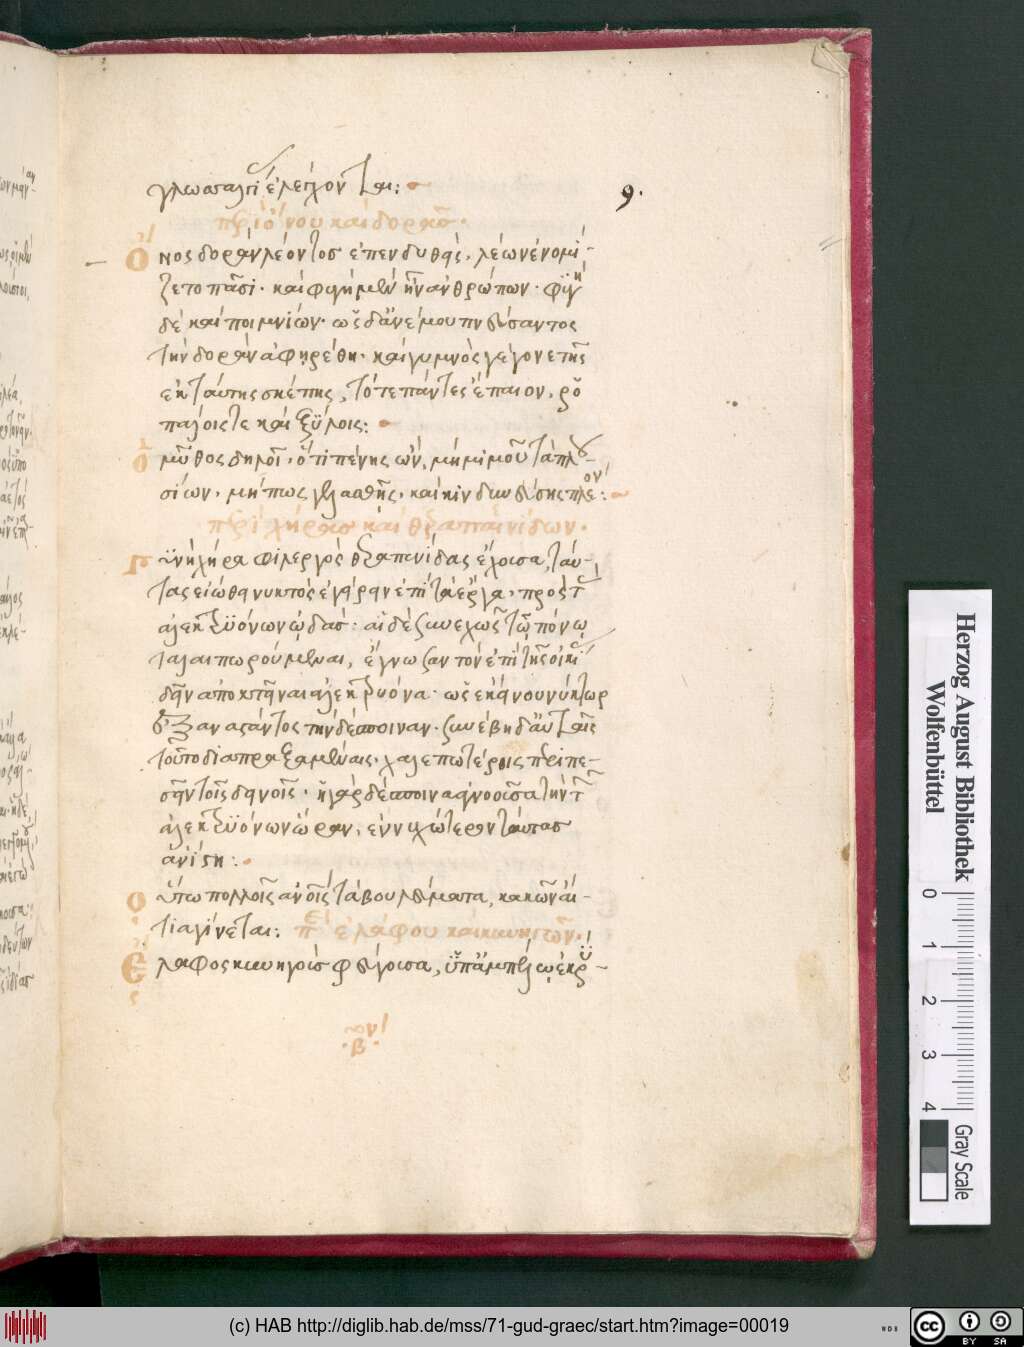 γλωσσαλγί ἐλέγχονται:
9.
περὶ ὄνου καὶ δορᾶσ.
Ὄνος δορὰν λέοντος ἐπενδυθεὶς, λέων ἐνομί-
ζετο πᾶσι. καὶ φυγὴ μὲν ἦν ἀνθρώπων. φυγὴ
δὲ καὶ ποιμνίων. ὡς δ' ἄνεμου πνεύσαντος
τὴν δορὰν ἀφῃρέθη. καὶ γυμνὸς γέγονε τῆς
ἐκ ταύτης σκέπης, τότε πάντες ἔπαιον, ῥο
πάλοις τε καὶ ξύλοις:
ὁ μῦθος δηλοῖ, ὅτι πένης ὢν, μὴ μιμοῦ τὰ πλου-
σίων, μή πως γελασθῇς, καὶ κινδυνεύσῃς πλέον:
περὶ χήρασ καὶ θεραπαινίδων.
Γυνὴ χήρα φιλεργὸς θεραπαινίδας ἔχουσα, ταύ-
τας εἰώθει νυκτὸς ἐγείρειν ἐπὶ τὰ ἔργα, πρὸς τ
ἀλεκτρυόνων ᾠδάσ. αἱ δὲ συνεχῶς τῷ πόνῳ
ταλαιπωρούμεναι, ἔγνωσαν τὸν ἐπὶ τῆς οἰκί
δεῖν ἀποκτεῖναι ἀλεκτρυόνα. ὡς ἐκείνου νύκτωρ
ἐξαναστάντος τὴν δέσποιναν. συνέβη δ' αὐταῖς
τοῦτο διαπραξαμέναις, χαλεπωτέροις περιπε-
σεῖν τοῖς δεινοῖς. ἡ γὰρ δέσποινα ἀγνοοῦσα τὴν τ
ἀλεκτρυόνων ὥραν, ἐννυχώτερον ταύτασ
ἀνίστη:
Οὕτω πολλοῖς ἀν οῖς τὰ βουλεύματα, κακῶν αἴ-
τια γίνεται:
περὶ ἐλάφου καὶ κυνηγῶν.
Ἔλαφος κυνηγοὺσ φεύγουσα, ὑπ' ἀμπέλῳ ἐκρύ-
Herzog August Bibliothek
Wolfenbüttel
0 1 2 3 4
Gray Scale
(c) HAB http://diglib.hab.de/mss/71-gud-graec/start.htm?image=00019
WDB
cc BY SA